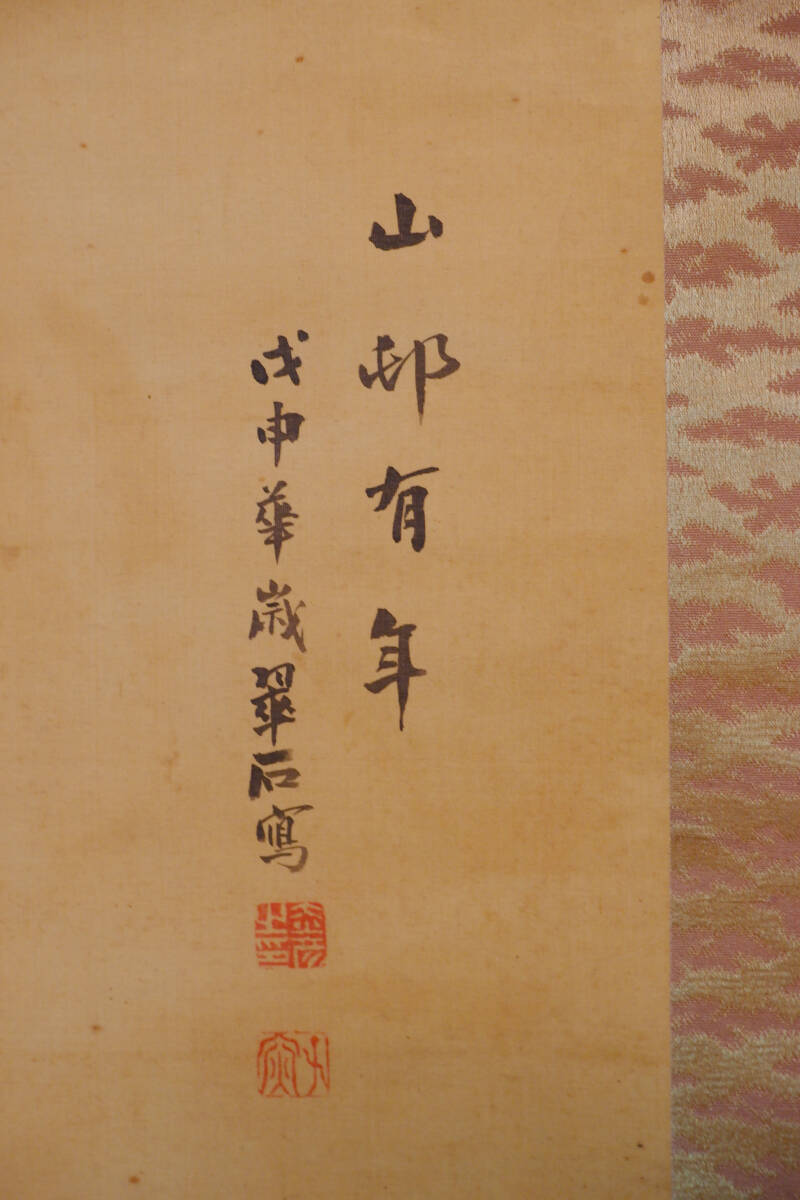 山邨有年
戊申華歳翠石寫